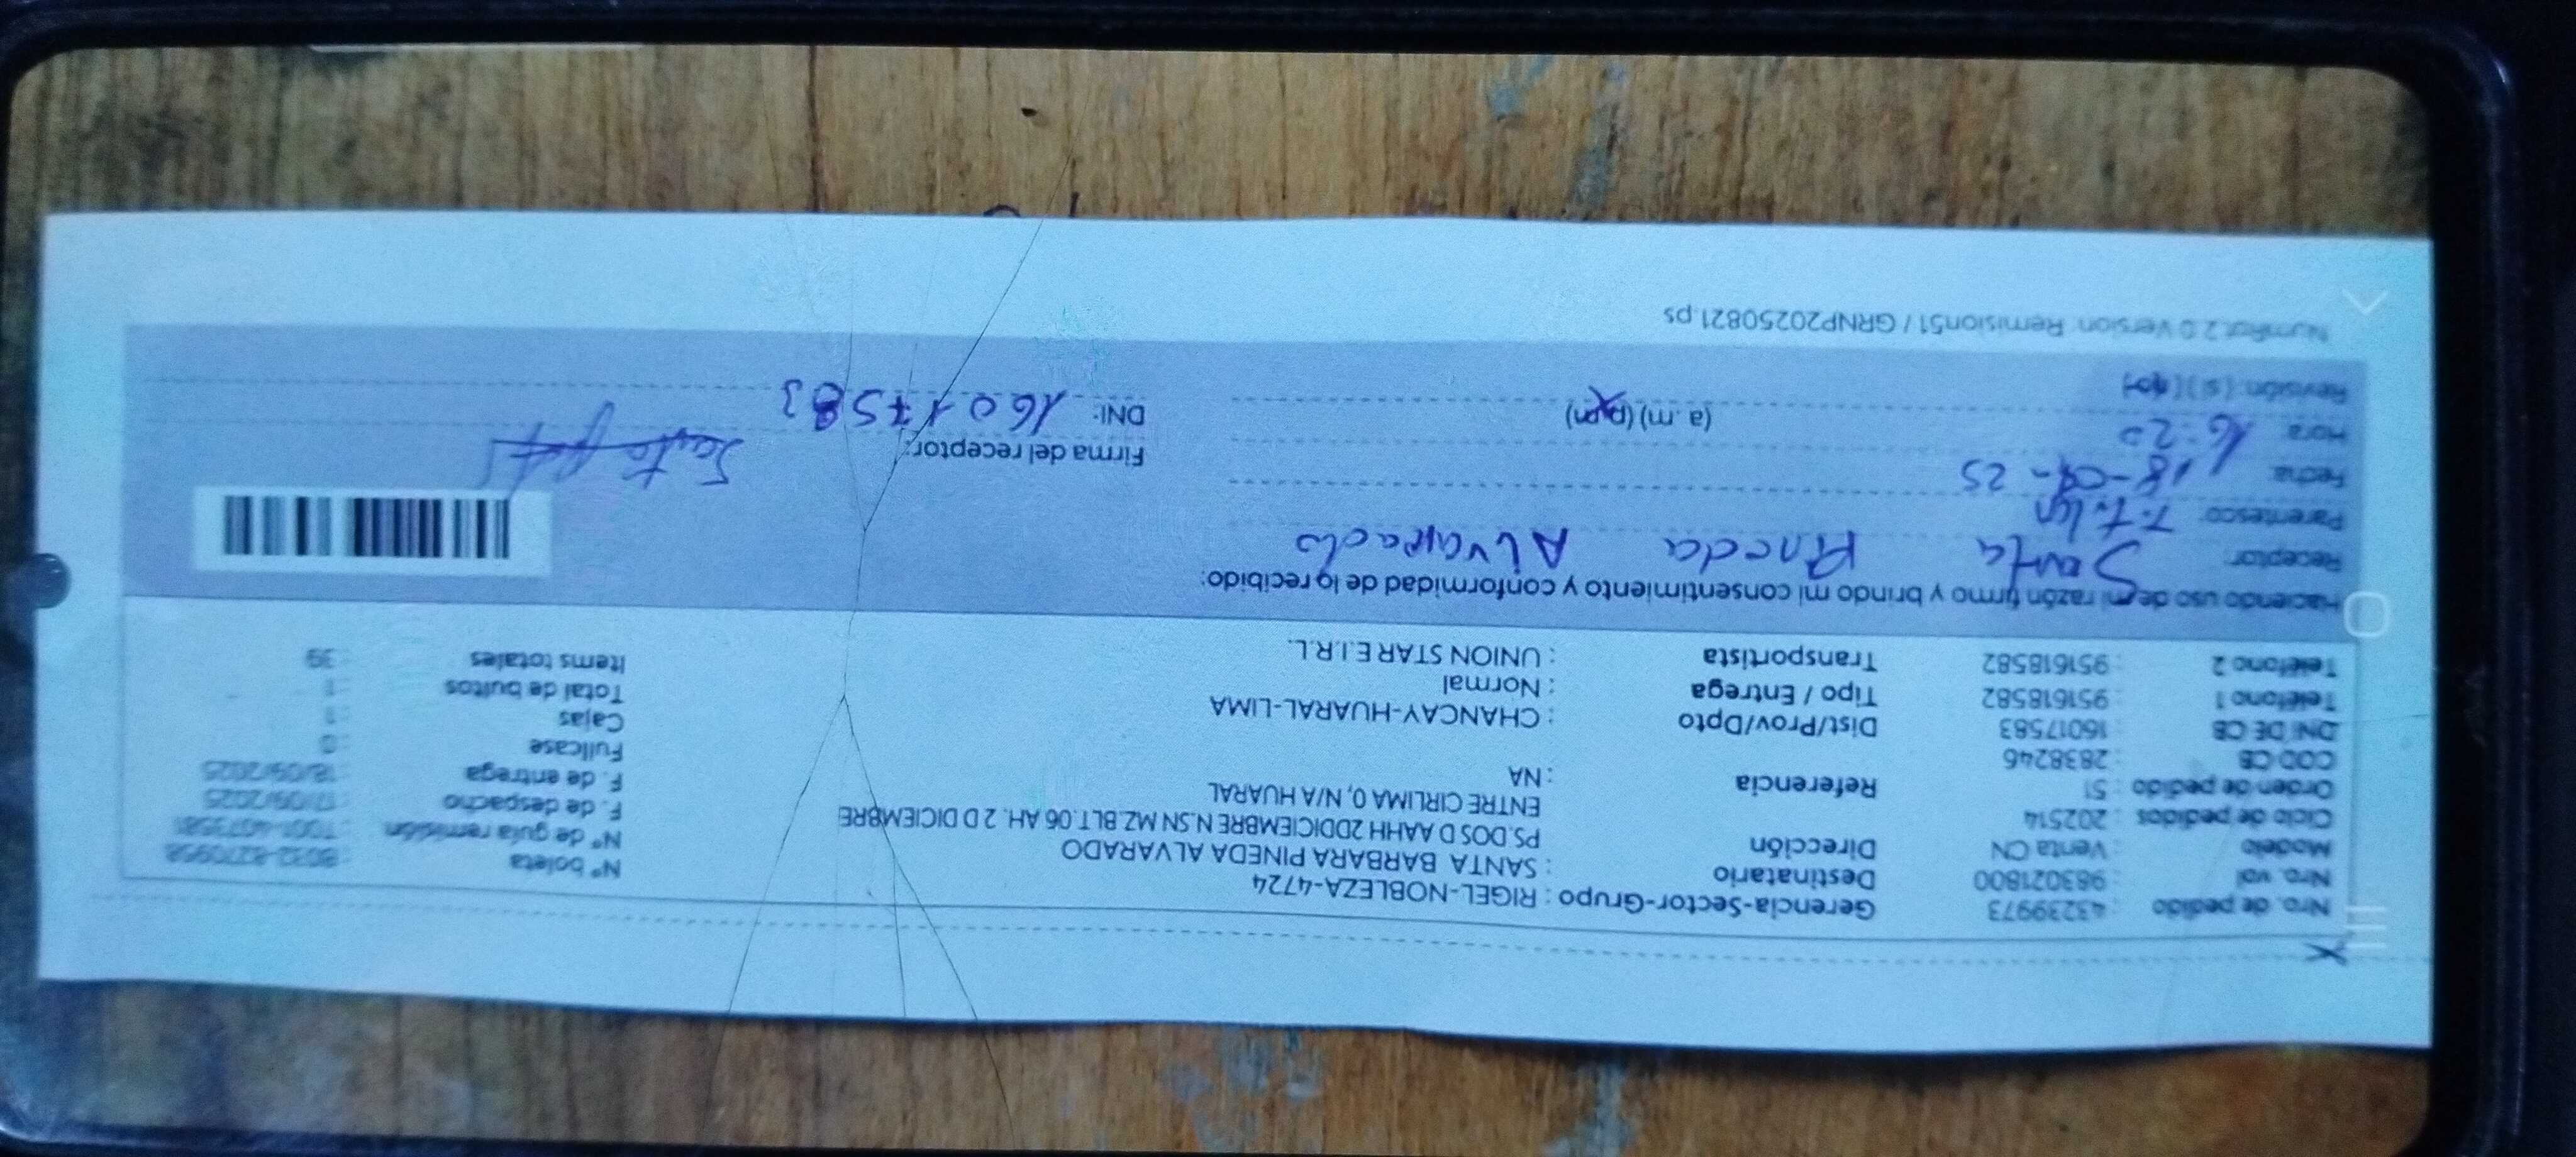 Nro. de pedido : 43239973 Gerencia-Sector-Grupo : RIGEL-NOBLEZA-4724 N° boleta : B032-8270958
Nro. vol : 983021800 Destinatario : SANTA BARBARA PINEDA ALVARADO N° de guía remisión : T001-4073581
Modelo : Venta CN Dirección PS.DOS D AAHH 2DDICIEMBRE N.SN MZ BLT.06 AH. 2 D DICIEMBRE F. de despacho : 17/09/2025
Ciclo de pedidos : 202514 ENTRE CIRLIMA 0, N/A HUARAL F. de entrega : 18/09/2025
Orden de pedido : 51 Referencia : NA Fullcase : 0
COD CB : 2838246 Dist/Prov/Dpto : CHANCAY-HUARAL-LIMA Cajas : 1
DNI DE CB : 16017583 Tipo / Entrega : Normal Total de bultos : 1
Teléfono 1 : 951618582 Transportista : UNION STAR E.I.R.L. Items totales : 39
Teléfono 2 : 951618582
Haciendo uso de mi razón firmo y brindo mi consentimiento y conformidad de lo recibido:
Receptor: Santa Pineda Alvarado
Parentesco:
Fecha: 18-09-25 Firma del receptor:
Hora: 16:20 (a. m) (p.m) DNI: 16017583
Revisión: (si) (no)
NumRot 2.0 Version: Remision51 / GRNP20250821.ps